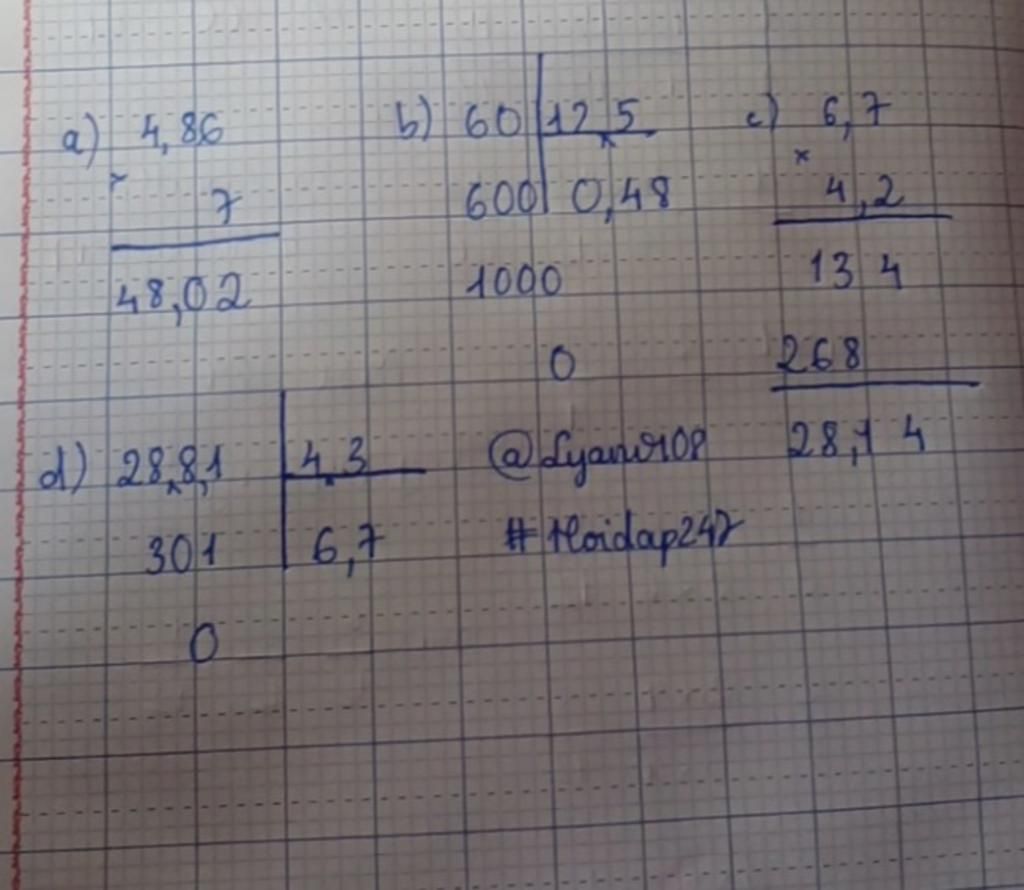 a) 4,86
× 7
48,02
b) 60 12,5
600 0,48
1000
0
c) 6,7
× 4,2
13 4
268
28,1 4
d) 28,8,1 4,3
301 6,7
0
#Hoidap247